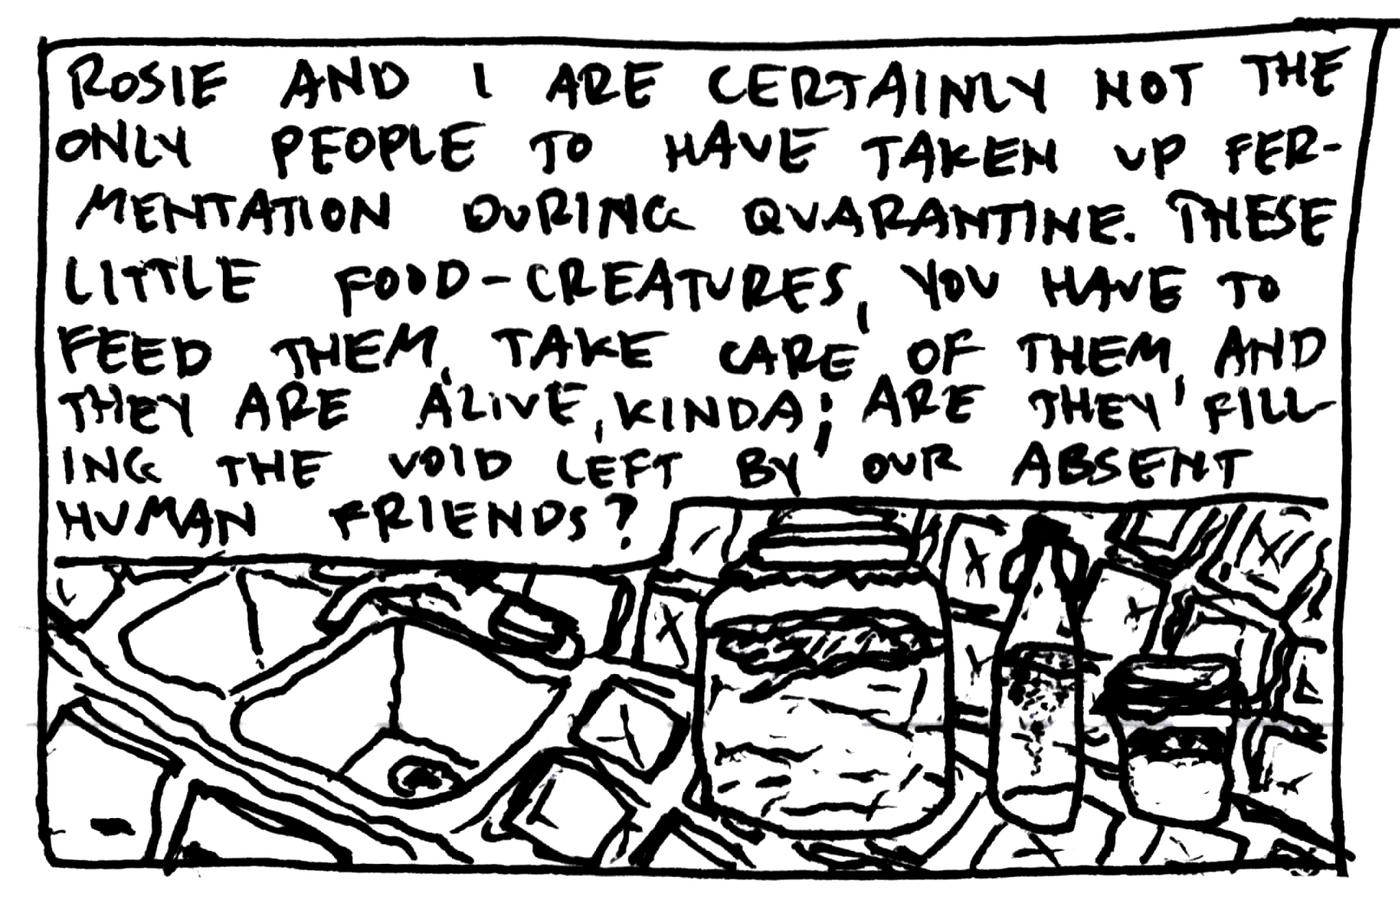 ROSIE AND I ARE CERTAINLY NOT THE
ONLY PEOPLE TO HAVE TAKEN UP FER-
MENTATION DURING QUARANTINE. THESE
LITTLE FOOD-CREATURES, YOU HAVE TO
FEED THEM, TAKE CARE OF THEM, AND
THEY ARE ALIVE, KINDA; ARE THEY FILL-
ING THE VOID LEFT BY OUR ABSENT
HUMAN FRIENDS?